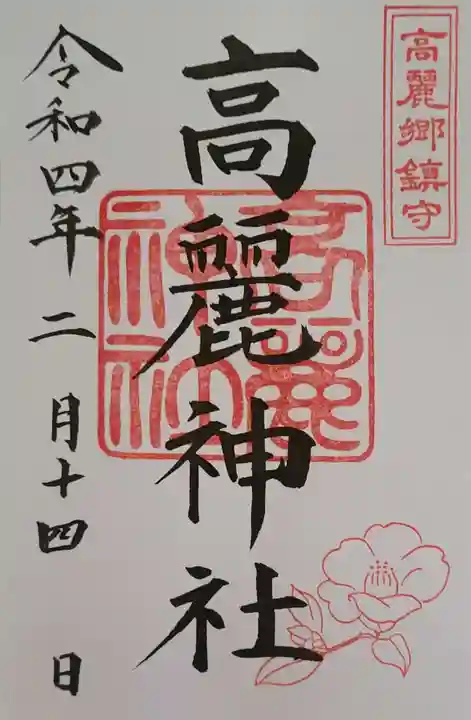 高麗郷鎮守
高麗神社
令和四年二月十四日